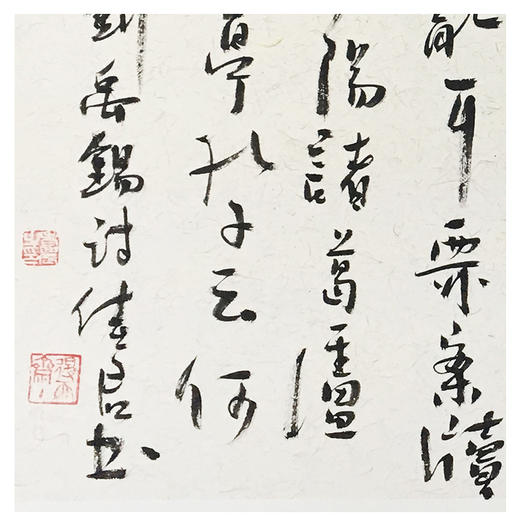 耳無案牘
陽諸葛廬
亭孔子云何
劉禹錫詩佳书